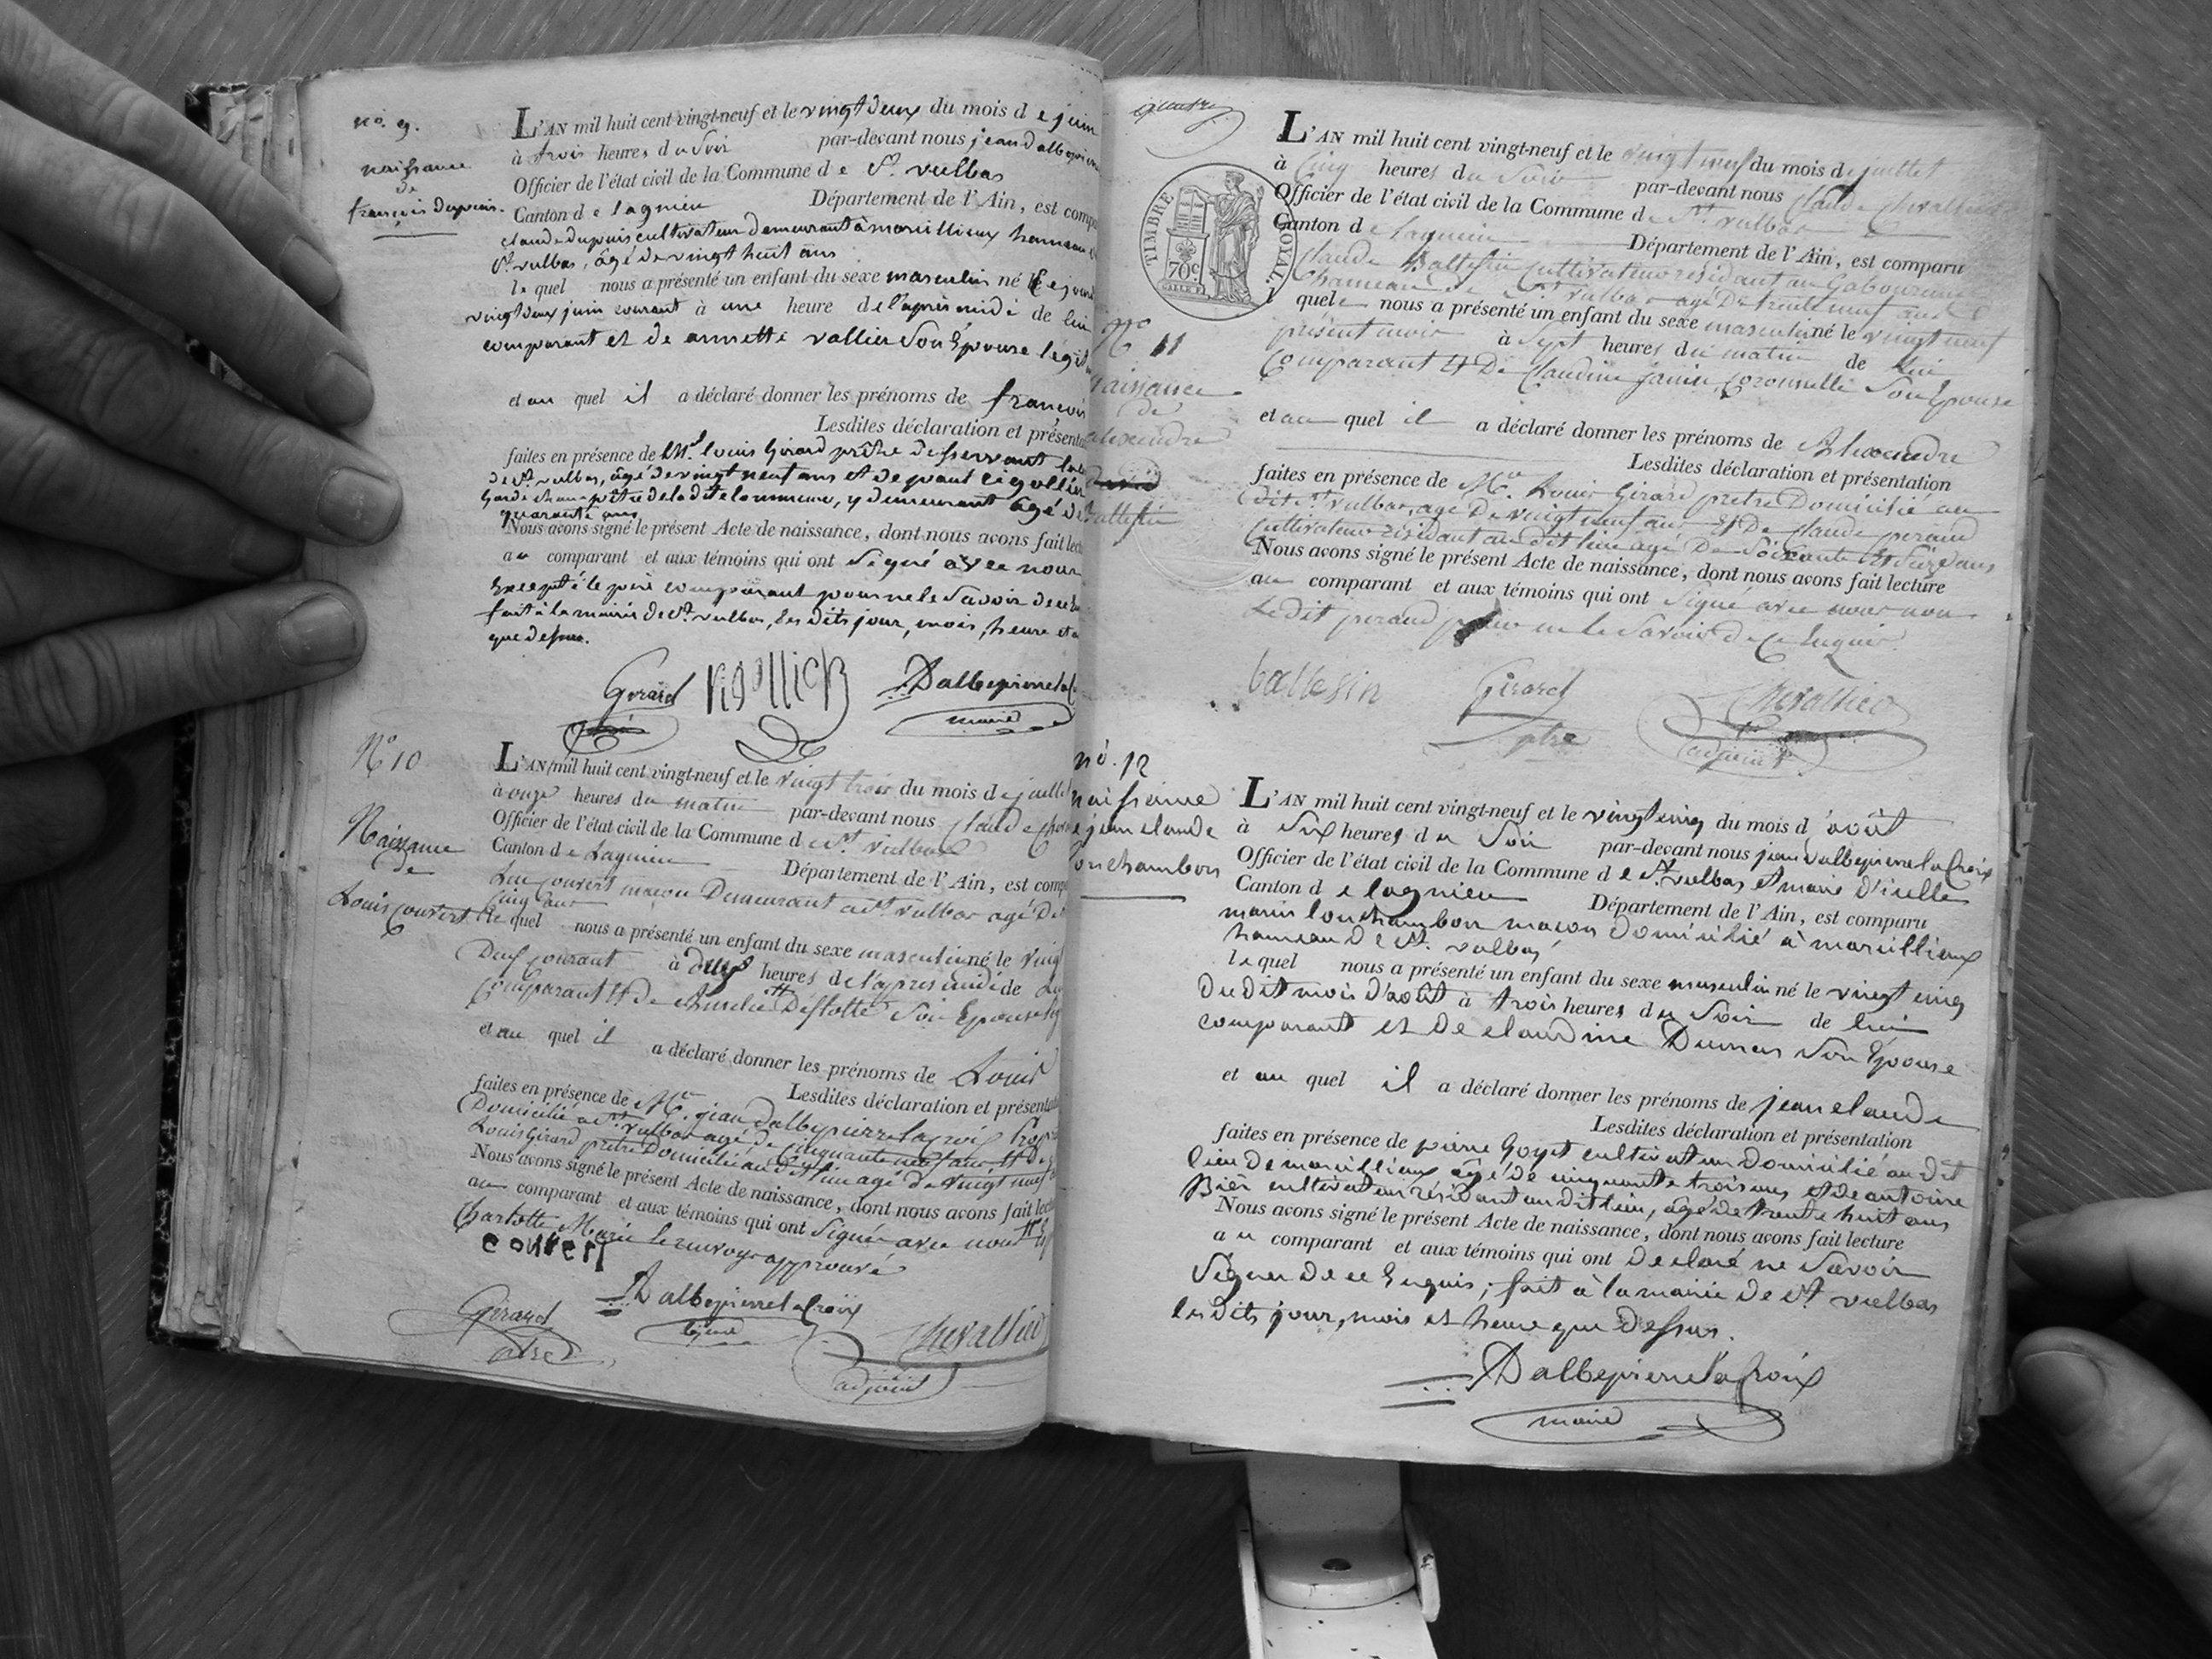 no. 9.
naissance
de
françois dupuis.
L'AN mil huit cent vingt-neuf et le vingt deux du mois de juin
à trois heures du soir par-devant nous jean dalbepierre
Officier de l'état civil de la Commune de St. vulbas
Canton de lagnieu Département de l'Ain, est compa
claude dupuis cultivateur demeurant à marcillieux hameau de
St. vulbas, âgé de vingt huit ans
le quel nous a présenté un enfant du sexe masculin né le jour
vingt deux juin courant à une heure de l'après midi de lui
comparant et de annette vallier son Epouse légit
et au quel il a déclaré donner les prénoms de françois
Lesdites déclaration et présenta
faites en présence de Mr. louis Girard prêtre desservant
de St. vulbas, âgé de vingt neuf ans et de paul rigollier
Garde champêtre de la dite commune, y demeurant âgé de
quarante ans
Nous avons signé le présent Acte de naissance, dont nous avons fait lect
au comparant et aux témoins qui ont signé avec nous
Excepté le père comparant pour ne le savoir de ce
fait à la mairie de St. vulbas, les dits jour, mois, heure et
que dessus.
Girard rigollier Dalbepierre
maire
No 10
Naissance
de
Louis Couvert
L'AN mil huit cent vingt-neuf et le vingt trois du mois de juillet
à onze heures du matin par-devant nous Claude
Officier de l'état civil de la Commune de St. vulbas
Canton de Lagnieu Département de l'Ain, est comp
Luc Couvert maçon Demeurant à St. vulbas agé de
cinq ans
le quel nous a présenté un enfant du sexe masculin né le vingt
Deux courant à deux heures de l'apres midi de lui
Comparant et de Destotte Son Epouse
et au quel il a déclaré donner les prénoms de Louis
Lesdites déclaration et présenta
faites en présence de Mr. jean dalbepierre lacroix
Domicilié à St. vulbas agé de Cinquante neuf ans et de
Louis Girard pretre Domicilié au dit lieu agé de vingt neuf
Nous avons signé le présent Acte de naissance, dont nous avons fait lect
au comparant et aux témoins qui ont Signé avec nous
Charlotte Marie le renvoy approuvé
couvert
Dalbepierre lacroix
Girard
ptre
Chevallier
adjoint
TIMBRE ROYAL
70c
No 11
naissance
de
alexandre
Ballesin
L'AN mil huit cent vingt-neuf et le vingt neuf du mois de juillet
à Cinq heures du Soir par-devant nous Claude Chevallier
Officier de l'état civil de la Commune de St. vulbas
Canton de Lagnieu Département de l'Ain, est comparu
Claude Ballesin Cultivateur résidant au
hameau de St. vulbas agé de trente neuf ans
l quel nous a présenté un enfant du sexe masculin né le vingt neuf
présent mois à Sept heures du matin de lui
Comparant et De Claudine janin Son Epouse
et au quel il a déclaré donner les prénoms de Alexandre
Lesdites déclaration et présentation
faites en présence de Mr. Louis Girard pretre Domicilié au
dit St. vulbas, agé De vingt neuf ans et De Claude peraud
Cultivateur résidant au dit lieu agé De Soixante et Seize ans
Nous avons signé le présent Acte de naissance, dont nous avons fait lecture
au comparant et aux témoins qui ont Signé avec nous non
Ledit peraud pour ne le Savoir de ce Enquis
ballesin
Girard
ptre
Chevallier
adjoint
no. 12
naissance
de jean claude
Louchambon
L'AN mil huit cent vingt-neuf et le vingt cinq du mois d'août
à Six heures du Soir par-devant nous jean Dalbepierre lacroix
Officier de l'état civil de la Commune de St. vulbas et maire d'icelle
Canton de lagnieu Département de l'Ain, est comparu
marin louchambon macon domicilié à marcillieux
hameau de St. vulbas
le quel nous a présenté un enfant du sexe masculin né le vingt cinq
du dit mois d'août à trois heures du Soir de lui
comparant et de claudine Dumas Son Epouse
et au quel il a déclaré donner les prénoms de jean claude
Lesdites déclaration et présentation
faites en présence de pierre Goyet cultivateur domicilié au dit
lieu de marcillieux âgé de cinquante trois ans et de antoine
Bier cultivateur résidant au dit lieu, âgé de trente huit ans
Nous avons signé le présent Acte de naissance, dont nous avons fait lecture
au comparant et aux témoins qui ont déclaré ne Savoir
Signer de ce Enquis; fait à la mairie de St. vulbas
les dits jour, mois et heure que dessus.
Dalbepierre lacroix
maire